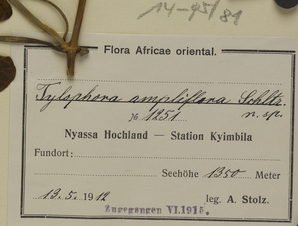 14-45/81
Flora Africae oriental.
Tylophora ampliflora Schltr.
№ 1251 n. sp.
Nyassa Hochland — Station Kyimbila
Fundort:
Seehöhe 1350 Meter
13. 5. 1912 leg. A. Stolz.
Zugegangen VI.1915.